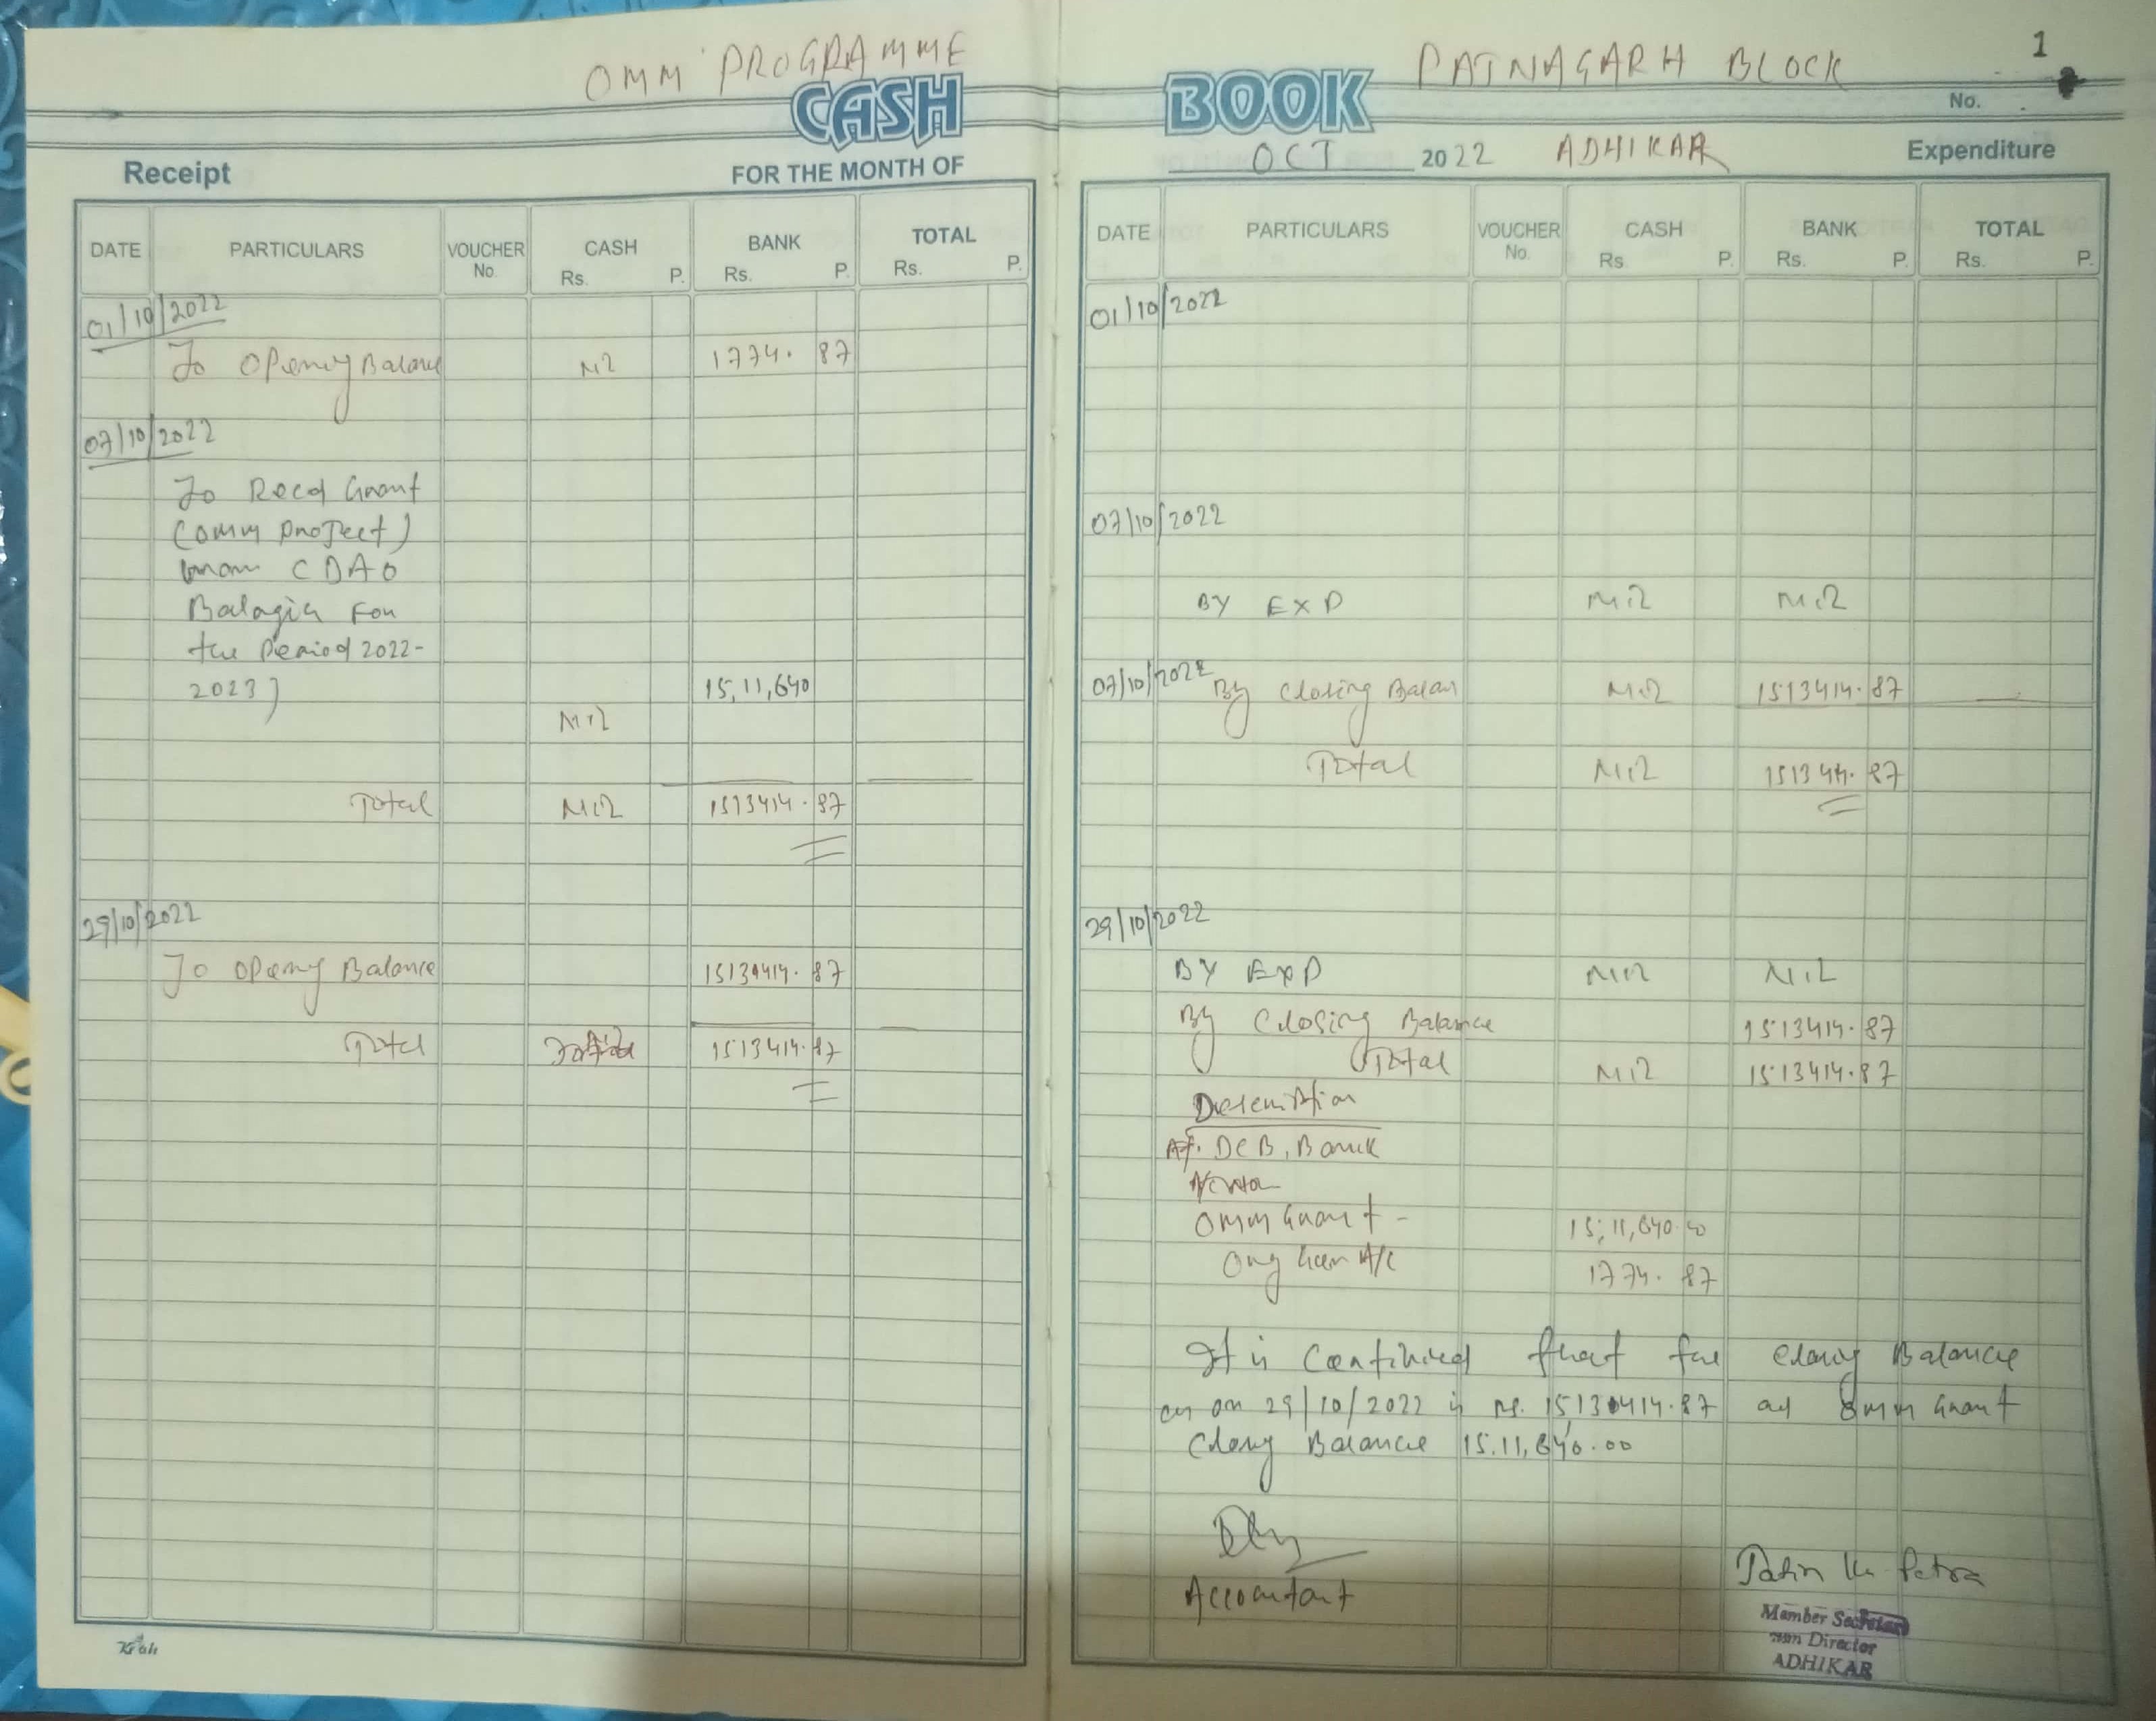 OMM PROGRAMME
PATNAGARH BLOCK
1
CASH BOOK
No.
Receipt
FOR THE MONTH OF OCT 2022 ADHIKAR
Expenditure
DATE PARTICULARS VOUCHER No. CASH Rs. P. BANK Rs. P. TOTAL Rs. P.
01/10/2022
To Opening Balance Nil 1774. 87
07/10/2022
To Recd Grant
(OMM Project)
from CDAO
Balagir For
the Period 2022-
2023) 15,11,640
Nil
Total Nil 1513414.87
29/10/2022
To Opening Balance 1513414.87
Total 1513414.87
DATE PARTICULARS VOUCHER No. CASH Rs. P. BANK Rs. P. TOTAL Rs. P.
01/10/2022
07/10/2022
BY EXP Nil Nil
07/10/2022 By Closing Balan Nil 1513414.87
Total Nil 1513414.87
29/10/2022
BY EXP Nil NIL
By Closing Balance 1513414.87
Total Nil 1513414.87
At. DCB, Bank
OMM Grant - 15,11,640.00
A/C 1774. 87
It is Certified that the Closing Balance
as on 29/10/2022 is Rs. 1513414.87 and OMM Grant
Closing Balance 15,11,640.00
Accountant
Member Secretary
Director
ADHIKAR